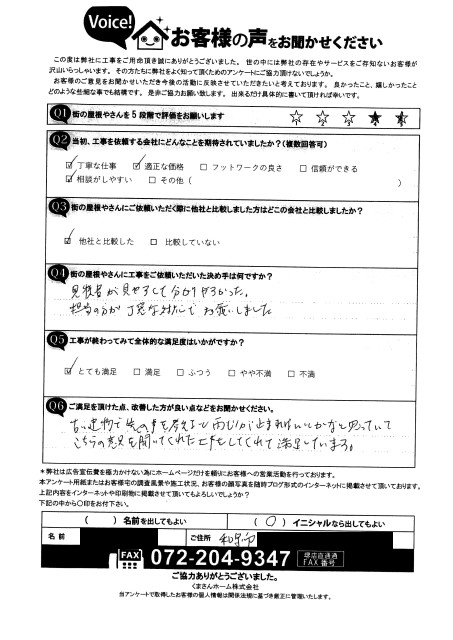 Voice!
お客様の声をお聞かせください
この度は弊社に工事をご用命頂き誠にありがとうございます。世の中には弊社の存在やサービスをご存知ないお客様が
沢山いらっしゃいます。その方たちに弊社をよく知って頂くためのアンケートにご協力頂けないでしょうか。
お客様のご意見をお聞かせいただき今後の活動に反映させていただきたいと考えております。良かったこと、嬉しかったこと
どのような些細な事でも結構です。是非ご協力お願い致します。出来るだけ具体的に書いて頂ければ幸いです。
Q1 街の屋根やさんを5段階で評価をお願いします ☆ ☆ ☆ ★ ★
Q2 当初、工事を依頼する会社にどんなことを期待されていましたか?(複数回答可)
☑ 丁寧な仕事 ☑ 適正な価格 □ フットワークの良さ □ 信頼ができる
☑ 相談がしやすい □ その他( )
Q3 街の屋根やさんにご依頼いただく際に他社と比較しました方はどこの会社と比較しましたか?
☑ 他社と比較した □ 比較していない
Q4 街の屋根やさんに工事をご依頼いただいた決め手は何ですか?
見積書が見やすくて分かりやすかった。
担当の方が丁寧な対応でお願いしました
Q5 工事が終わってみて全体的な満足度はいかがですか?
☑ とても満足 □ 満足 □ ふつう □ やや不満 □ 不満
Q6 ご満足を頂けた点、改善した方が良い点などをお聞かせください。
古い建物で先の事を考えると雨もりが止まればいいかなと思っていて
こちらの意見を聞いてくれた工事をしてくれて満足しています。
*弊社は広告宣伝費を極力かけない為にホームページだけを頼りにお客様への営業活動を行っております。
本アンケート用紙またはお客様宅の調査風景や施工状況、お客様の顔写真を随時ブログ形式のインターネットに掲載させて頂いております。
上記内容をインターネットや印刷物に掲載させて頂いてもよろしいでしょうか?
下記の中から〇印をお付下さい。
( ) 名前を出してもよい ( ○ ) イニシャルなら出してもよい
名前 ご住所 和泉市
FAX 072-204-9347 堺店直通 FAX番号
ご協力ありがとうございました。
くまさんホーム株式会社
当アンケートで取得したお客様の個人情報は関係法規に基づき厳正に管理いたします。